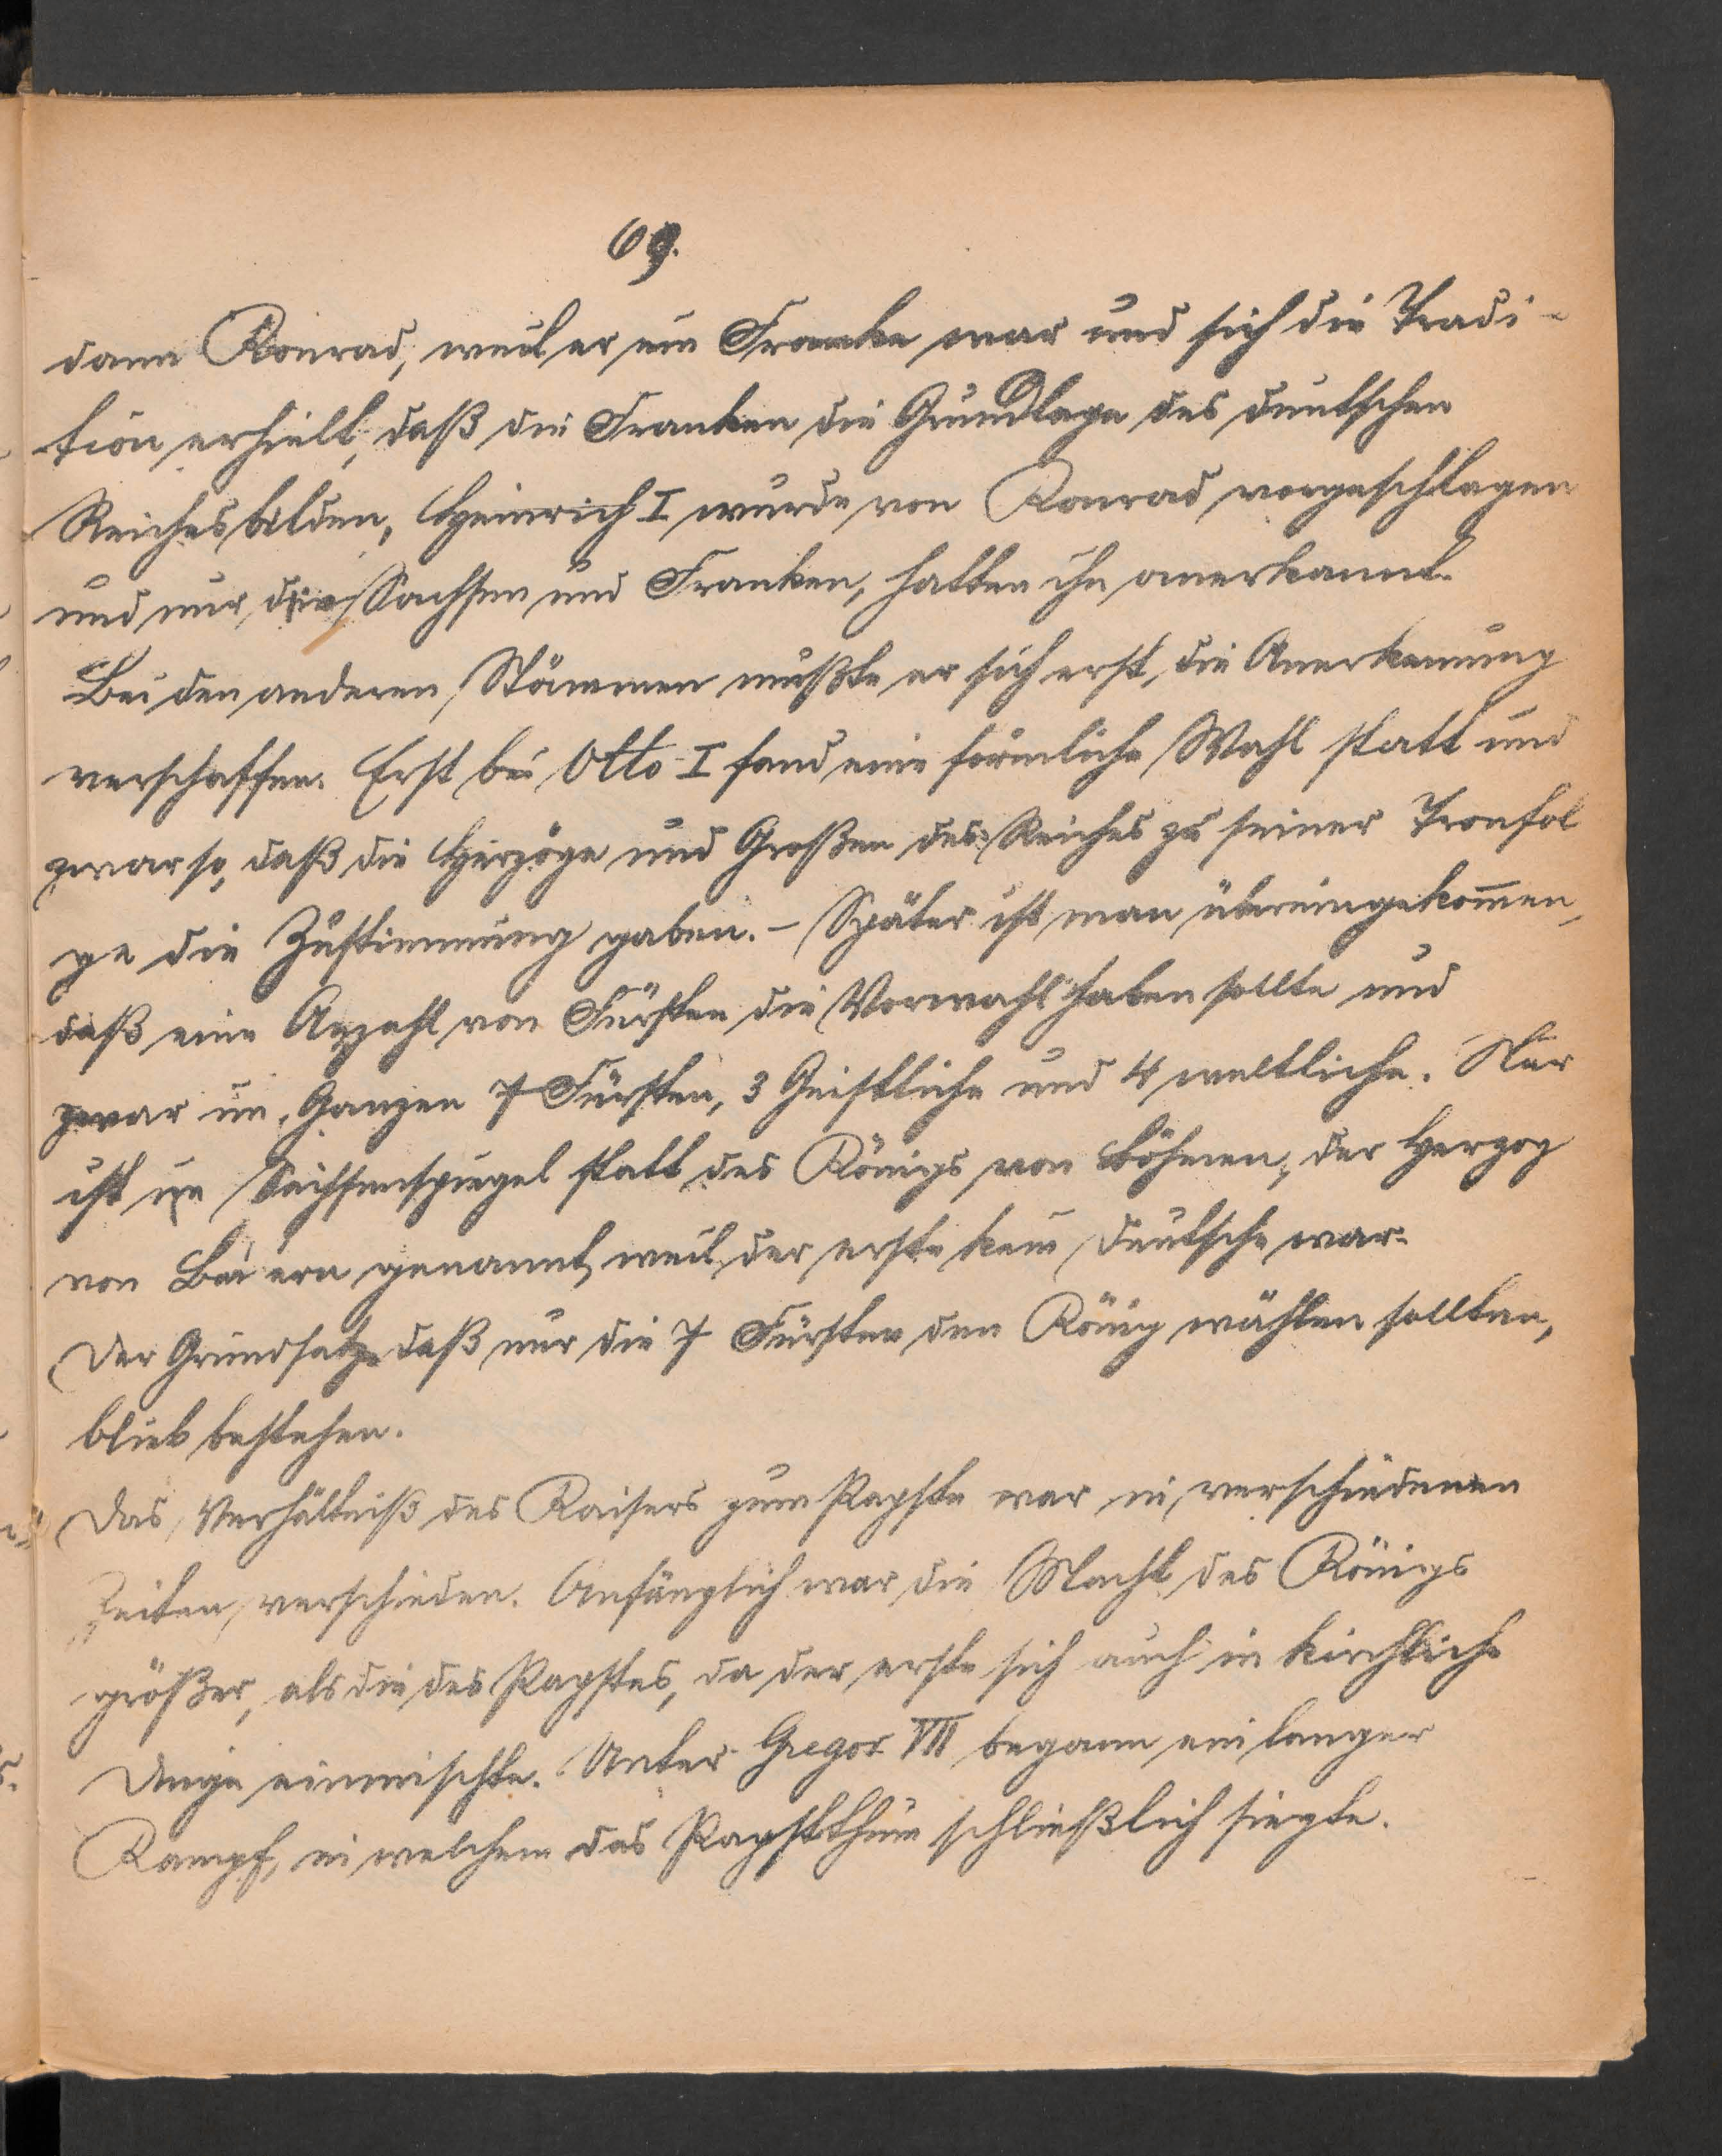 69.
dann Konrad, weil er ein Franke war und sich die Tradi-
tion erhielt, daß die Franken die Grundlage des deutschen
Reiches bilden, Heinrich I wurde von Konrad vorgeschlagen
und nur die Sachsen und Franken, hatten ihn anerkannt.
Bei den anderen Stämmen mußte er sich erst, die Anerkennung
verschaffen. Erst bei Otto I fand eine förmliche Wahl statt und
zwar so, daß die Herzöge und Großen des Reiches zu seiner Tronfol
ge die Zustimmung gaben. – Später ist man übereingekom̅en,
daß eine Anzahl von Fürsten die Vorwahl haben sollte und
zwar im Ganzen 7 Fürsten, 3 Geistliche und 4 weltliche. Nur
ist im Sachsenspiegel statt des Königs von Böhmen, der Herzog
von Baiern genannt, weil der erste kein Deutsche war.
Der Grundsatz daß nur die 7 Fürsten den König wählen sollten,
blieb bestehen.
Das Verhältniß des Kaisers zum Papste war in verschiedenen
Zeiten verschieden. Anfänglich war die Macht des Königs
größer, als die des Papstes, da der erste sich auch in kirchliche
Dinge einmischte. Unter Gregor VII begann ein langer
Kampf, in welchem das Papstthum schließlich siegte.